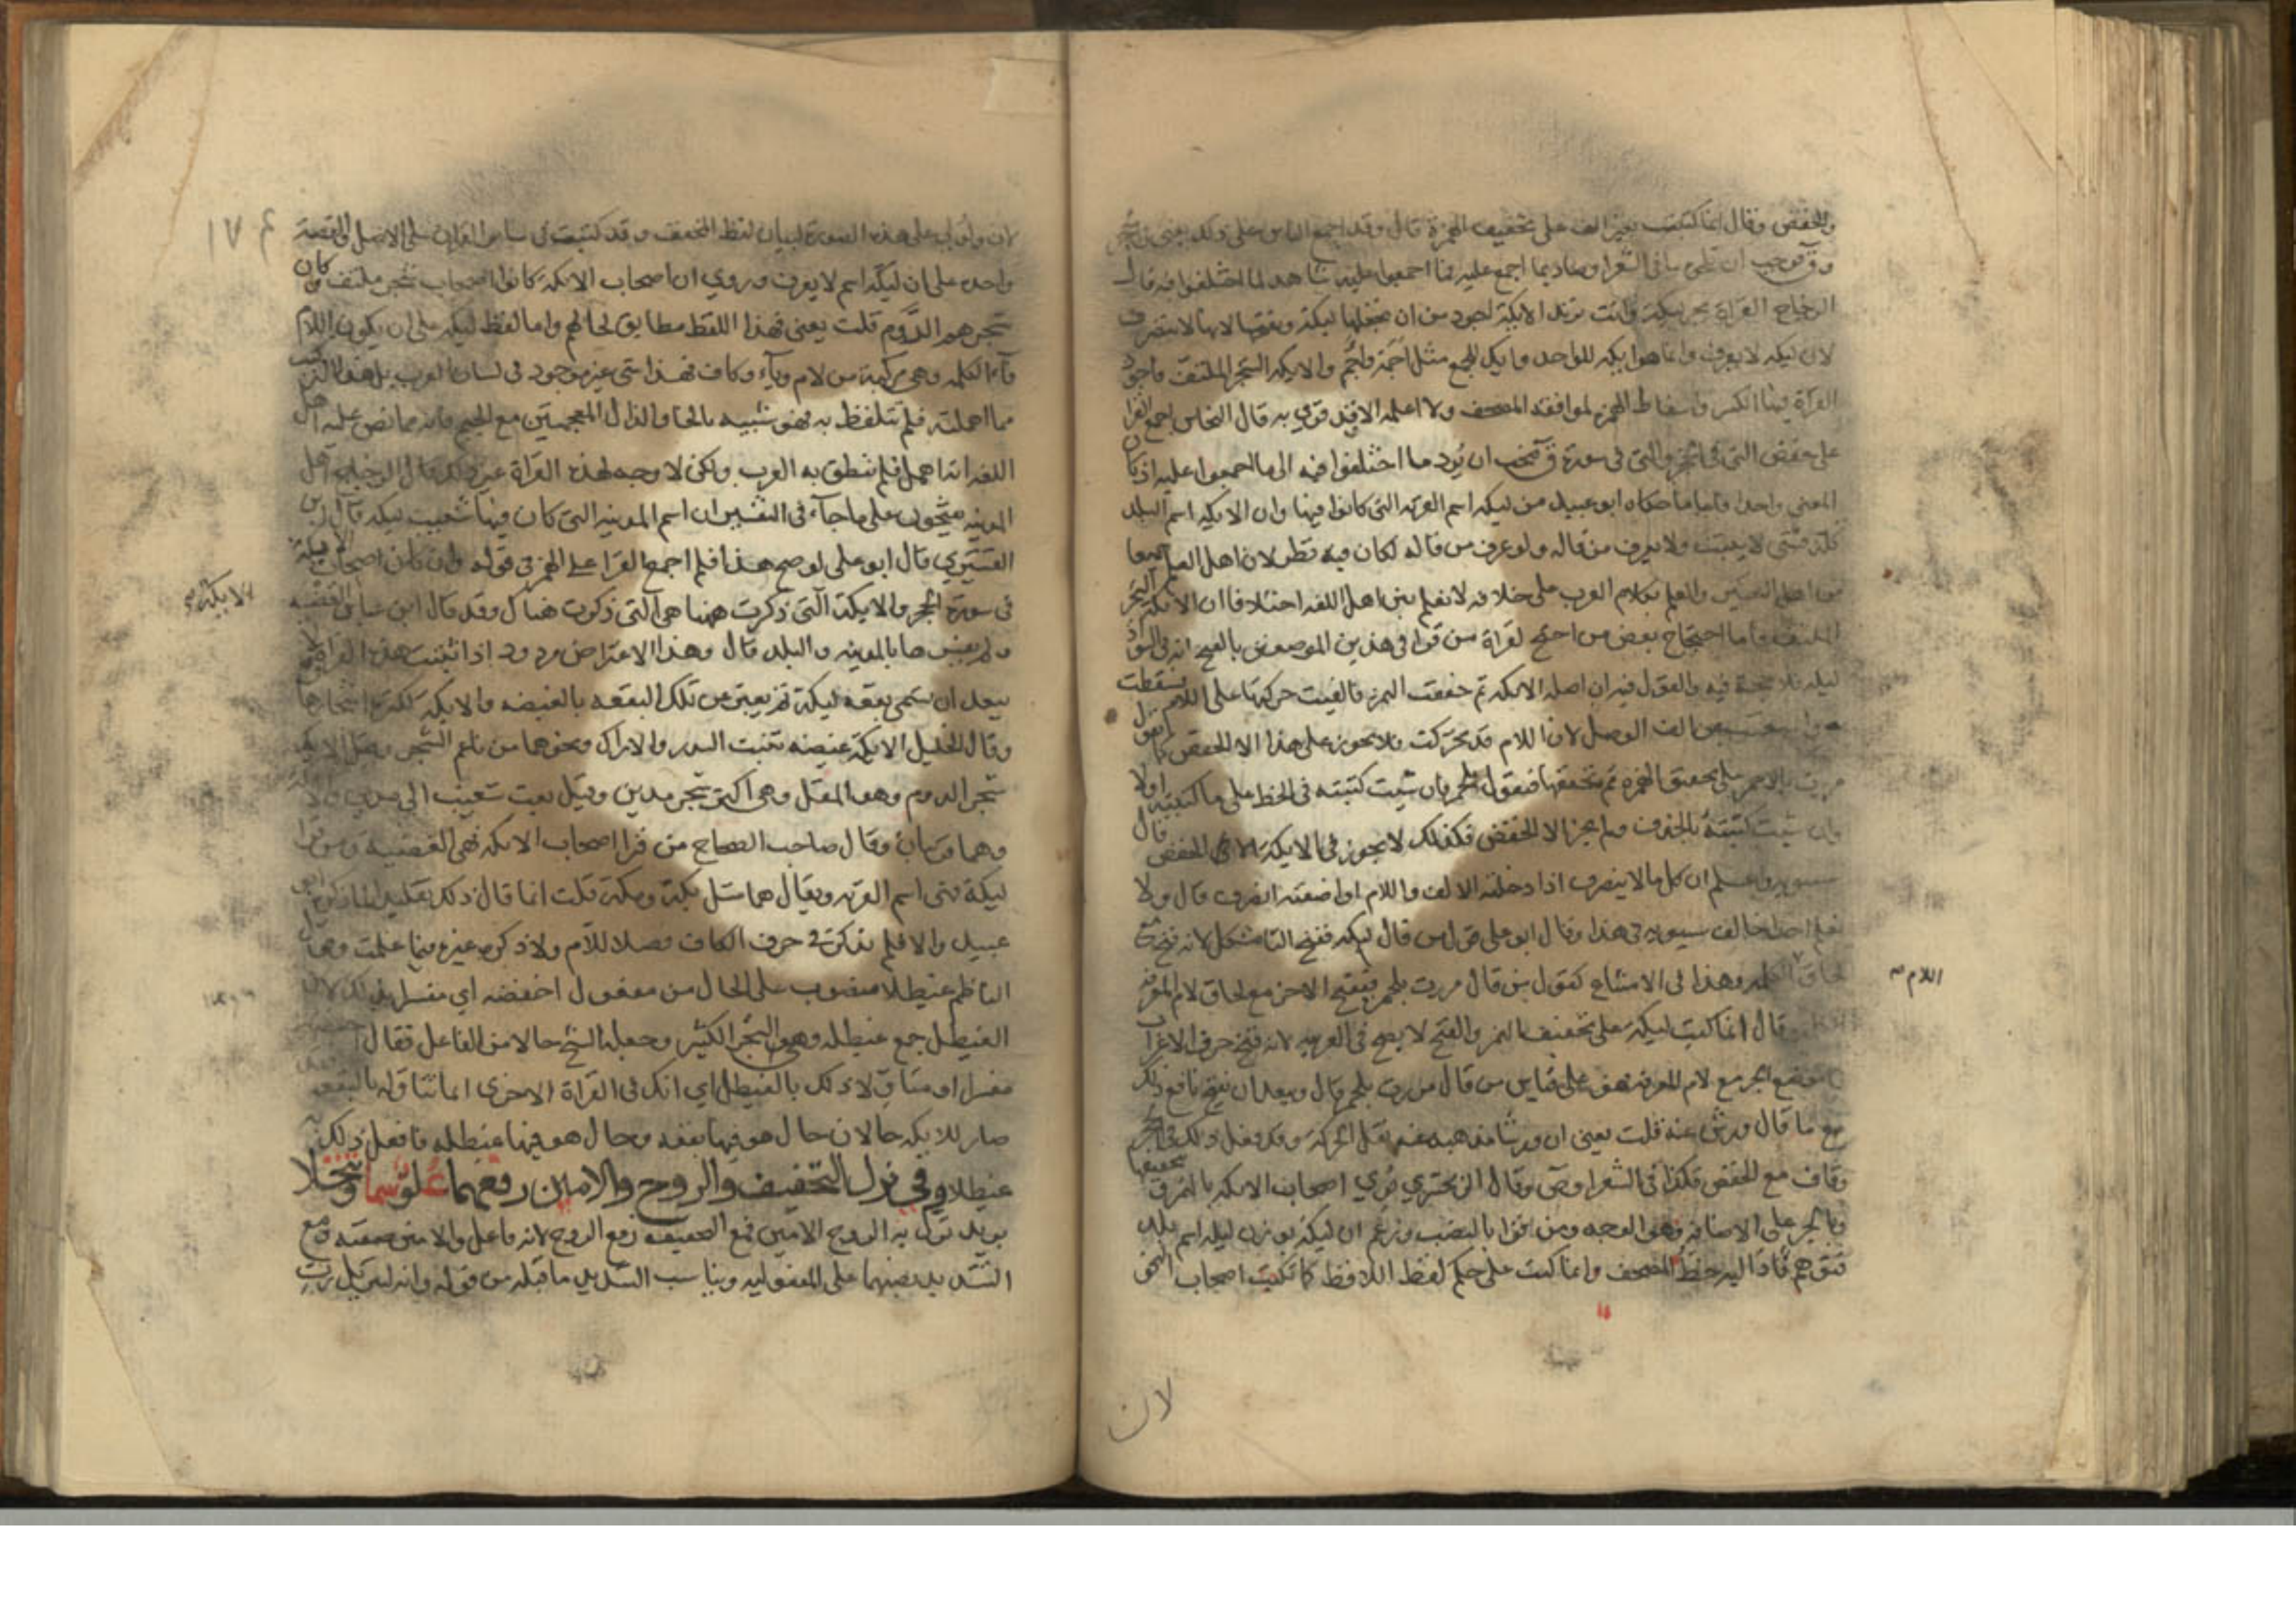 والخفض وقال انما كتبت بغير الف على تخفيف الهمزة قال وقد اجمع الناس على ذلك يعني في الحجر
وق فوجب ان يكون ما في الشعرا وصاد بما اجمع عليه فما اجمعوا عليه شاهد لما اختلفوا فيه قال
الزجاج القراة بجر ليكة وانت تريد الايكة اجود من ان تجعلها ليكة وتفتحها لانها لا تتصرف
لان ليكة لا يعرف وانما هو ايكه للواحد وايك للجمع مثل اجمة واجم والايكه الشجر الملتف فاجود
القراة فيها الكسر واسقاط الهمزة لموافقة المصحف ولا اعلمه الا قد قري به قال النحاس اجمع القرا
على خفض التي في الحجر والتي في سورة ق فيجب ان يرد ما اختلفوا فيه الى ما اجمعوا عليه اذ كان
المعنى واحدا فاما ما حكاه ابو عبيد من ليكه اسم القريه التي كانوا فيها وان الايكه اسم البلد
كله فشي لا يثبت ولا يعرف من قاله ولو عرف من قاله لكان فيه نظر لان اهل العلم جميعا
من اهل التفسير والعلم بكلام العرب على خلافه لا نعلم بين اهل اللغه اختلافا ان الايكه الشجر
الملتف فاما احتجاج بعض من احتج لقراة من قرا في هذين الموضعين بالفتح انه في السواد
ليكه فلا حجة فيه والقول فيه ان اصله الايكه ثم خففت الهمزه فالقيت حركتها على اللام فسقطت
واستغنيت عن الف الوصل لان اللام قد تحركت فلا يجوز على هذا الا الخفض كما تقول
مررت بالاحمر على تحقيق الهمزة ثم تخففها فتقول بلحمر فان شيت كتبته في الخط على ما كتبته اولا
وان شيت كتبته بالحذف ولم يجز الا الخفض فكذلك لا يجوز في الايكة الا الخفض قال
سيبويه واعلم ان كل ما لا ينصرف اذا دخلته الالف واللام او اضفته انصرف قال ولا
نعلم احدا خالف سيبويه في هذا وقال ابو علي قول من قال ليكه ففتح التا مشكل لانه فتح مع
لحاق الكلمه وهذا في الامتناع كقول من قال مررت بلحمر فيفتح الاخر مع لحاق لام المعرفه
وقال انما كتبت ليكة على تخفيف الهمز والفتح لا يصح في العربيه لانه فتح حرف الاعراب
في موضع الجر مع لام المعرفه فهو على قياس من قال مررت بلحمر قال ويبعد ان يفتح نافع ذلك
مع ما قال ورش عنه قلت يعني ان ورشا مذهبه عنه نقل الحركة وقد فعل ذلك في الحجر
وقاف مع الخفض فكذا في الشعرا وص وقال الزمخشري قري اصحاب الايكه بالهمزة وتخفيفها
وبالجر على الاضافه وهو الوجه ومن قرا بالنصب وزعم ان ليكة بوزن ليله اسم بلد
فتوهم قاد اليه خط المصحف وانما كتبت على حكم لفظ اللافظ كما تكتب اصحاب النحو
اللام
لان
١٧٤
لان ولولى على هذه الصورة لبيان لفظ المخفف وقد كتبت في ساير القران على الاصل والقصة
واحدة على ان ليكة اسم لا يعرف وروي ان اصحاب الايكة كانوا اصحاب شجر ملتف وكان
شجرهم الدوم قلت يعني فهذا اللفظ مطابق لحالهم واما لفظ ليكه على ان يكون اللام
فاء الكلمه وهي مركبة من لام وياء وكاف فهذا شي غير موجود في لسان العرب بل هذا التركيب
مما اهملته فلم تتلفظ به فهو شبيه بالخا والذال المعجمتين مع الجيم فانه مما نص عليه اهل
اللغه انه اهمل فلم تنطق به العرب ولكن لا وجه لهذه القراة غير ذلك
على ما جاء في التفسير ان اسم المدينه التي كان فيها شعيب ليكه قال ابن
القشيري قال ابو علي لو صح هذا فلم اجمع القرا على الهمز في قوله وان كان اصحاب الايكة
في سورة الحجر والايكة التي ذكرت ههنا هي التي ذكرت هناك وقد قال ابن عباس الغيضه
ولم يفسرها بالمدينه والبلد قال وهذا الاعتراض مردود اذا ثبتت هذه القراة فلا
يبعد ان تسمى بقعه ليكة ثم يعبر عن تلك البقعه بالغيضه والايكة لكثرة اشجارها
وقال الخليل الايكة غيضه تنبت السدر والاراك ونحوهما من ناعم الشجر وقيل الايكة
شجر الدوم وهو المقل وهي اكثر شجر مدين وقيل بعث شعيب الى مدين والايكة
وهما قريتان وقال صاحب الصحاح من قرا اصحاب الايكه فهي الغيضة ومن قرا
ليكة فهي اسم القريه ويقال هما مثل بكة ومكة قلت انما قال ذلك تقليدا لما ذكره ابو
عبيد والا فلم يذكر في حرف الكاف فصلا للام ولا ذكره غيره فيما علمت وقول
الناظم غيطلا منصوب على الحال من مفعول اخفضه اي مفسرا بذلك لان
الغيطل جمع غيطله وهي الشجر الكثير وجعله الشيخ حالا من الفاعل فقال
مفسرا او متاولا ذلك بالغيطل اي انك في القراة الاخرى انما تتاوله بالبقعه
صار للايكه حالان حال هو فيها بقعه وحال هو فيها غيطله فافعل ذلك
غيطلا وفي نزل التخفيف والروح والامين رفعهما علو سما وتبجلا
يريد نزل به الروح الامين فمع التخفيف رفع الروح لانه فاعل والامين صفته ومع
التشديد نصبهما على المفعوليه ويناسب التشديد ما قبله من قوله وانه لتنزيل رب
الايكة